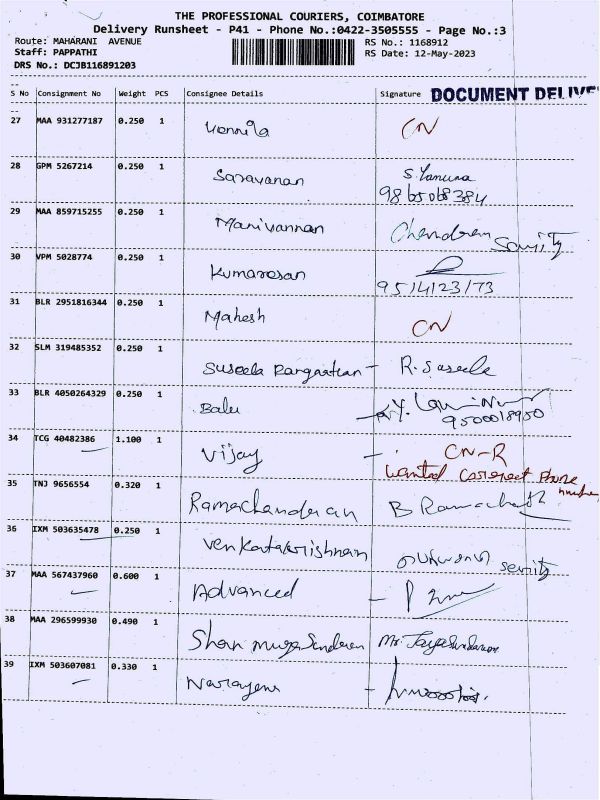 THE PROFESSIONAL COURIERS, COIMBATORE
Delivery Runsheet - P41 - Phone No.:0422-3505555 - Page No.:3
Route: MAHARANI AVENUE RS No.: 1168912
Staff: PAPPATHI RS Date: 12-May-2023
DRS No.: DCJB116891203
S No Consignment No Weight PCS Consignee Details Signature DOCUMENT DELIVE
27 MAA 931277187 0.250 1 Vennila CN
28 GPM 5267214 0.250 1 Saravanan S. Yamuna
9865068384
29 MAA 859715255 0.250 1 Manivannan Chandran
30 VPM 5028774 0.250 1 Kumaresan
9514123173
31 BLR 2951816344 0.250 1 Mahesh CN
32 SLM 319485352 0.250 1 Suseela Rangarajan - R. Suseela
33 BLR 4050264329 0.250 1 Balu
9500018950
34 TCG 40482386 1.100 1 Vijay - CN-R
Wanted Correct Phone number
35 TNJ 9656554 0.320 1 Ramachandran B Ramachath
36 IXM 503635478 0.250 1 Venkatakrishnan
37 MAA 567437960 0.600 1 Advanced -
38 MAA 296599930 0.490 1 Shan muga Sundaram Mr. Jayasundaram
39 IXM 503607081 0.330 1 Narayana -